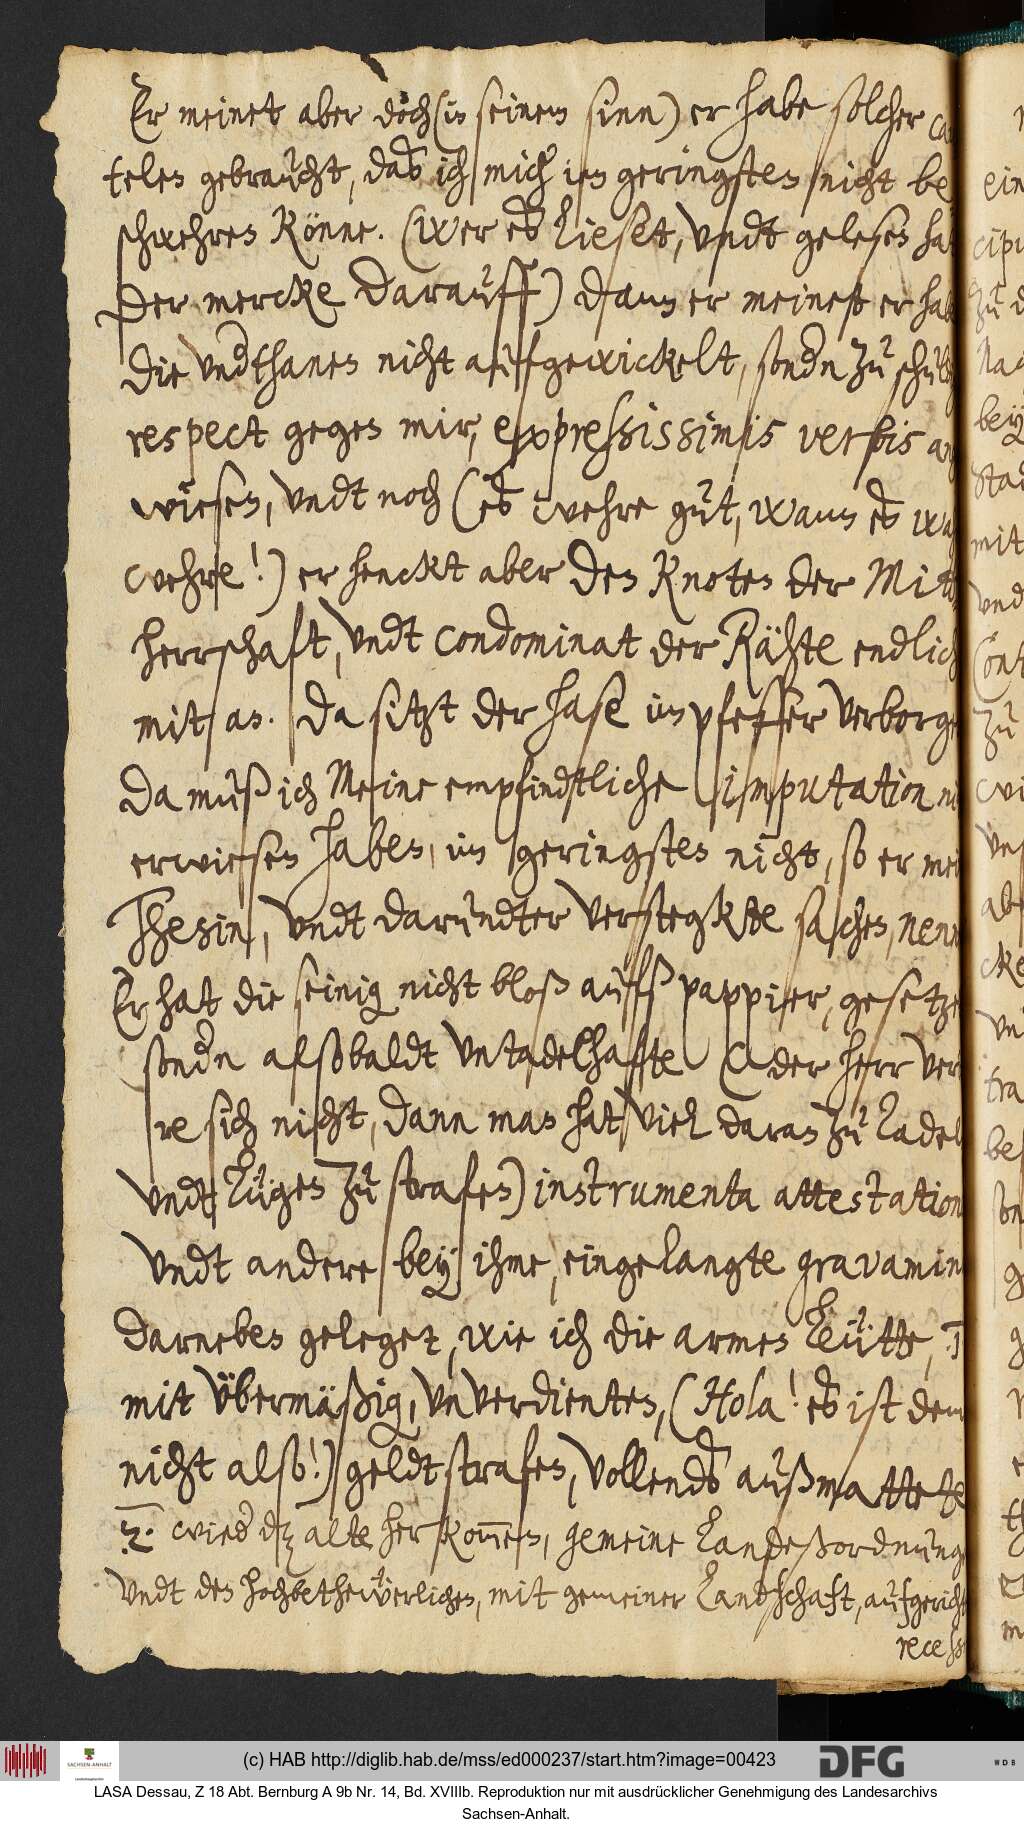 Er meinet aber doch (in seinem sinn) er habe solcher
telen gebraucht, das ich mich im geringsten nicht be
schwehren könne. (Wer es lieset, vndt gelesen
der mercke darauff) dann er meinest er
die vndthanen nicht auffgewickelt, sondn zu
respect gegen mir, expressissimis verbis
wiesen, vndt noch (es wehre gut, wann es
wehre!) er henckt aber den Knoten der
herrschaft, vndt condominat der Rähte endlich
mit an. Da sitzt der hase im pfeffer verborge
Da muß ich Meine empfindtliche imputation
erwiesen haben, im geringsten nicht, so er
Thesin, vndt darundter verstegkte sachen,
Er hat die seinig nicht bloß auffß pappier, gesetze
sondn alsobaldt vntadelhaffte (der herr ver
re sich nicht, dann man hat viel daran zu tadel
vndt Lügen zu strafen) instrumenta attestation
vndt andere bey ihme, eingelangte gravamin
darneben geleget, wie ich die armen Leütte,
mit übermäßig, vnverdienten, (Hola! es ist dem
nicht also!) geldtstrafen, vollends außmattete
2. wied dz alte herkom̄en, gemeine Landeßordnung
vndt den hochbetheüerlichen, mit gemeiner Landschaft, aufgericht
recess
ein
bey
Stad
mit
vnd
zu
(c) HAB http://diglib.hab.de/mss/ed000237/start.htm?image=00423
DFG
WDB
SACHSEN-ANHALT
LASA Dessau, Z 18 Abt. Bernburg A 9b Nr. 14, Bd. XVIIIb. Reproduktion nur mit ausdrücklicher Genehmigung des Landesarchivs
Sachsen-Anhalt.